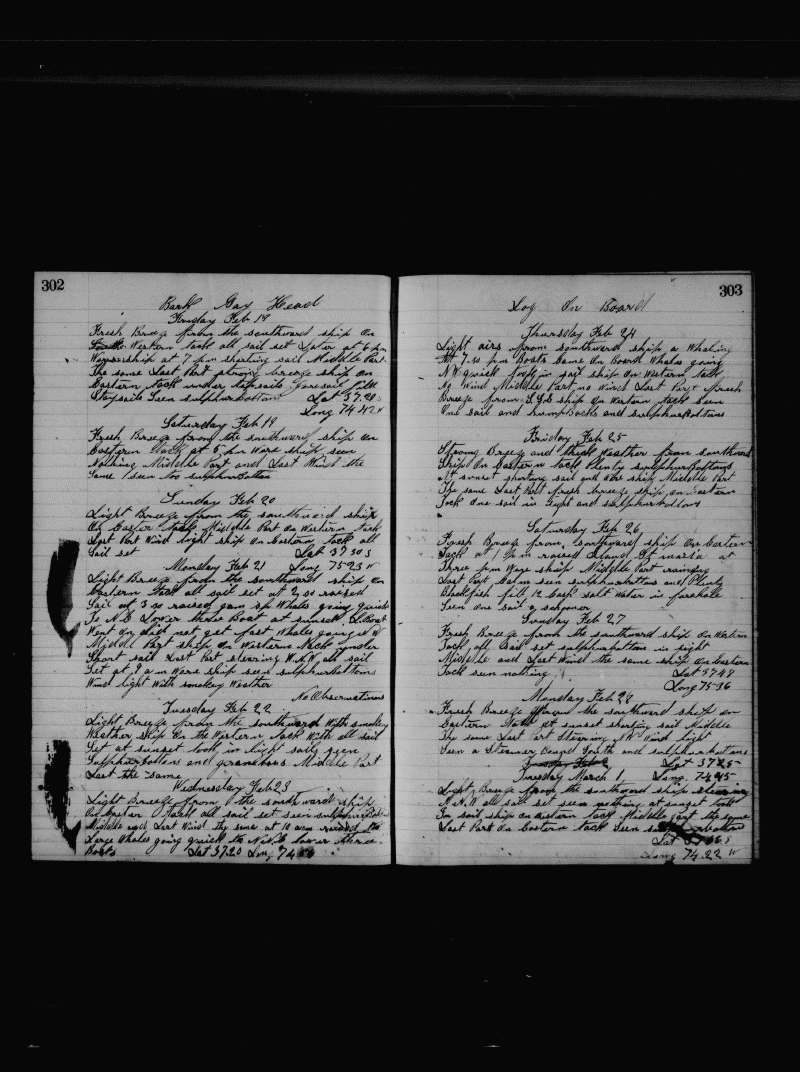 302
Bark Gay Head
Friday Feb 18
Fresh Breeze from the southward ship on
Western tack all sail set Later at 6 pm
Wore ship at 7 pm shorting sail Middle Part
The same Last Part strong breeze ship on
Eastern tack under topsails foresail
Staysails Seen sulphurbottoms Lat 37.20 S
Long 74.42 W
Saturday Feb 19
Fresh Breeze from the southward ship on
Eastern tack at 5 pm Wore ship seen
Nothing Middle Part and Last Wind the
Same seen too sulphurbottom
Sunday Feb 20
Light Breeze from the southward ship
On Easter tack Middle Part On Western tack
Last Part Wind light ship on Eastern tack all
Sail set Lat 37 30 S
Monday Feb 21 Long 75-23 W
Light Breeze from the southward ship on
Eastern tack all sail set at raised
Sail at 3 30 raised gam of Whales going quick
To N.E Lower three Boat at sunset Boat
Went On did not get fast Whales going
Middle Part ship on Western tack under
Short sail Last Part stearing W.N.W all sail
Set at 9 am Wore ship seen sulphurbottoms
Wind light With smokey Weather
No Observations
Tuesday Feb 22
Light Breeze from the southward With smokey
Weather ship On the Western tack With all sail
Set at sunset took in light sails seen
Sulphurbottoms and grampous Middle Part
Last the same
Wednesday Feb 23
Light Breeze from the southward ship
On Easter tack all sail set seen sulphurbottoms
Middle and Last Wind the same at 10 am raised
Large Whales going quick to lower three
Boats Lat 37.20 Long 74
303
Log On Board
Thursday Feb 24
Light airs from southward ship a Whaling
At 7.30 pm Boats Came On Board Whales going
N.W. quick in sail ship On Western tack
No Wind Middle Part no Winds Last Part fresh
Breeze from ship on Western tack seen
One sail and humpbacks and sulphurbottoms
Friday Feb 25
Strong Breeze and thick Weather from southward
Ship On Eastern tack Plenty sulphurbottoms
At sunset shorting sail and Wore ship Middle Part
The same Last Part fresh breeze ship on Eastern
Tack one sail in sight and sulphurbottoms
Saturday Feb 26
Fresh Breeze from southward ship On Eastern
Tack at 1 pm raised Island St maria at
Three pm Wore ship Middle Part raining
Last Part Calm seen sulphurbottoms and Plenty
Blackfish fill 12 Cask salt Water in forehole
Seen one sail a schooner
Sunday Feb 27
Fresh Breeze from the southward ship On Western
Tack all sail set sulphurbottoms in sight
Middle and Last Wind the same ship on Eastern
Tack seen nothing Lat 37 47
Long 75-36
Monday Feb 28
Fresh Breeze from the southward ship on
Eastern tack at sunset shorting sail Middle
The same Last Part Stearing Wind light
Seen a Steamer Bound South and sulphurbottoms
Lat 37 25
Tuesday March 1 Long 74 45
Light Breeze from the southward ship stearing
N.N.W all sail set seen nothing at sunset took
In sail ship on Western tack Middle part the same
Last Part On Eastern tack Seen
Lat
Long 74 22 W